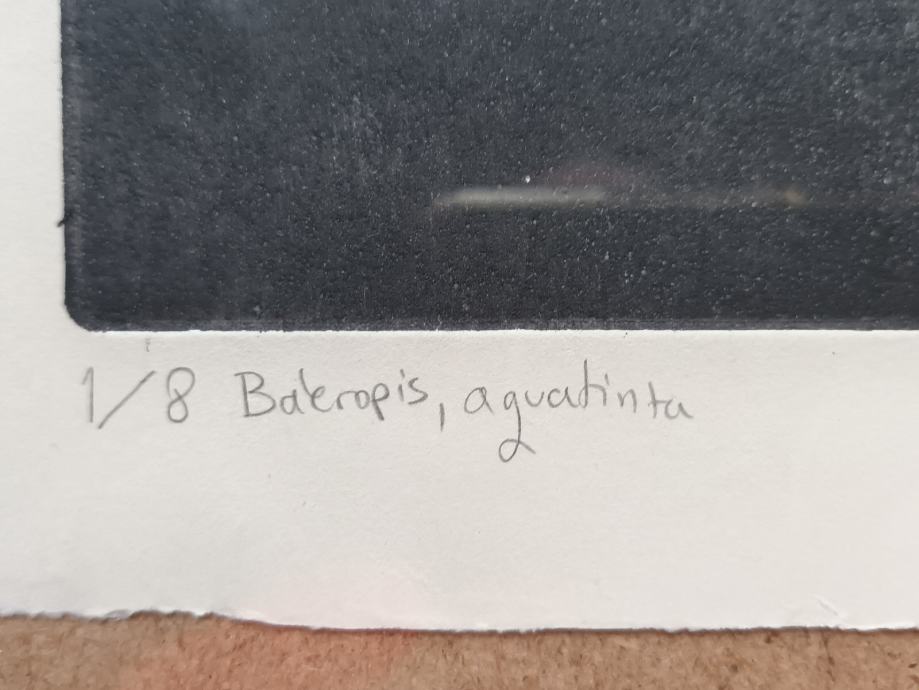 1/8 Bateropis, aguatinta